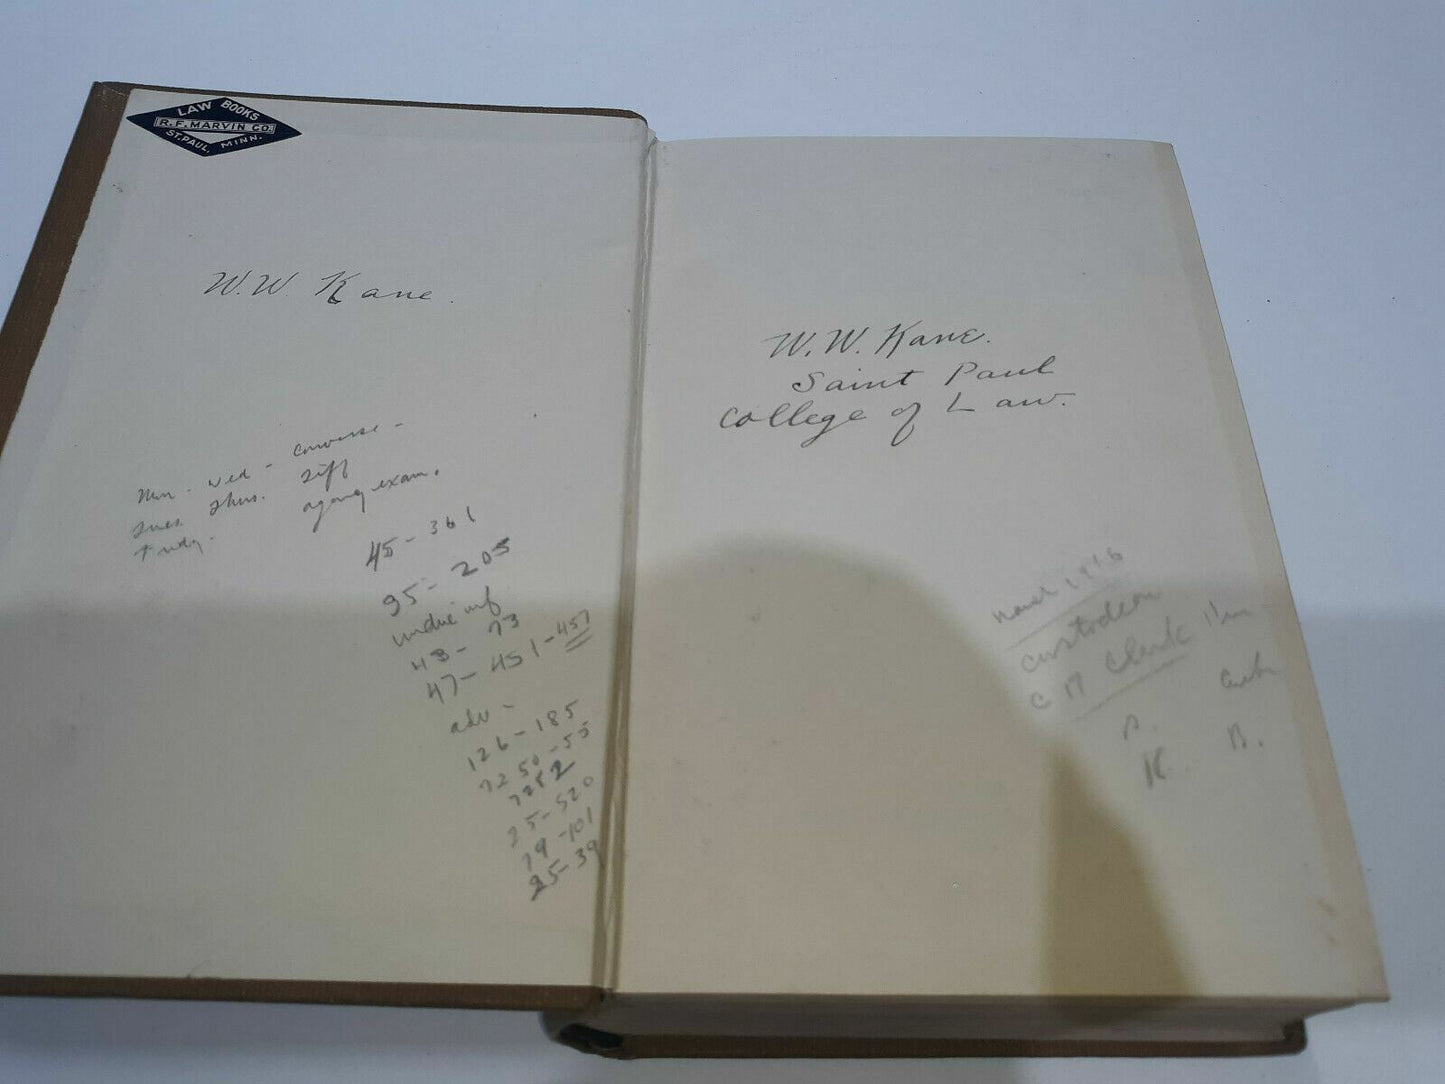 LAW BOOKS
R.F. MARVIN CO.
ST. PAUL, MINN.
W.W. Kane.
Mon. Wed - converse -
Tues. Thus.
Friday. agency exam.
45 - 361
95 - 205
undue inf.
48 - 73
47 - 451 - 457
adv -
126 - 185
72 50 - 55
7252
25 - 520
79 - 101
25 - 39
W. W. Kane.
Saint Paul
College of Law.
custodian
C M Clerk
K. B.